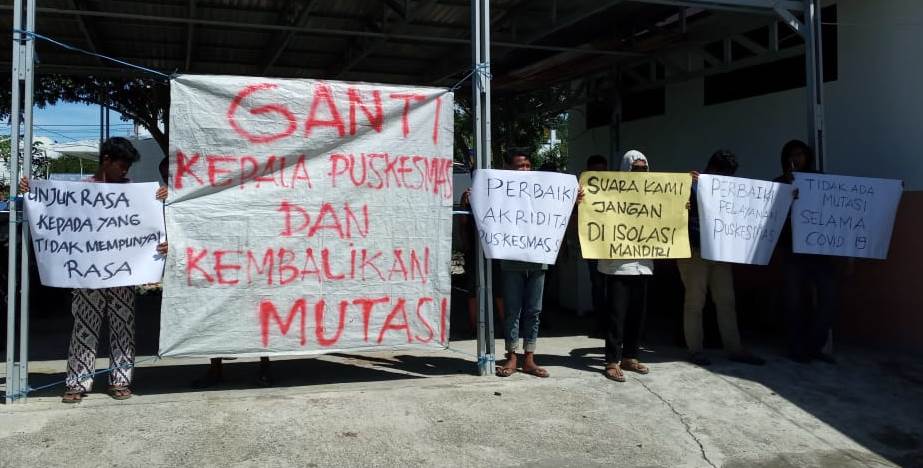 UNJUK RASA
KEPADA YANG
TIDAK MEMPUNYAI
RASA
GANTI
KEPALA PUSKESMAS
DAN
KEMBALIKAN
MUTASI
PERBAIKI
AKRIDITA
PUSKESMAS
SUARA KAMI
JANGAN
DI ISOLASI
MANDIRI
PERBAIKI
PELAYANAN
PUSKESMAS
TIDAK ADA
MUTASI
SELAMA
COVID 19